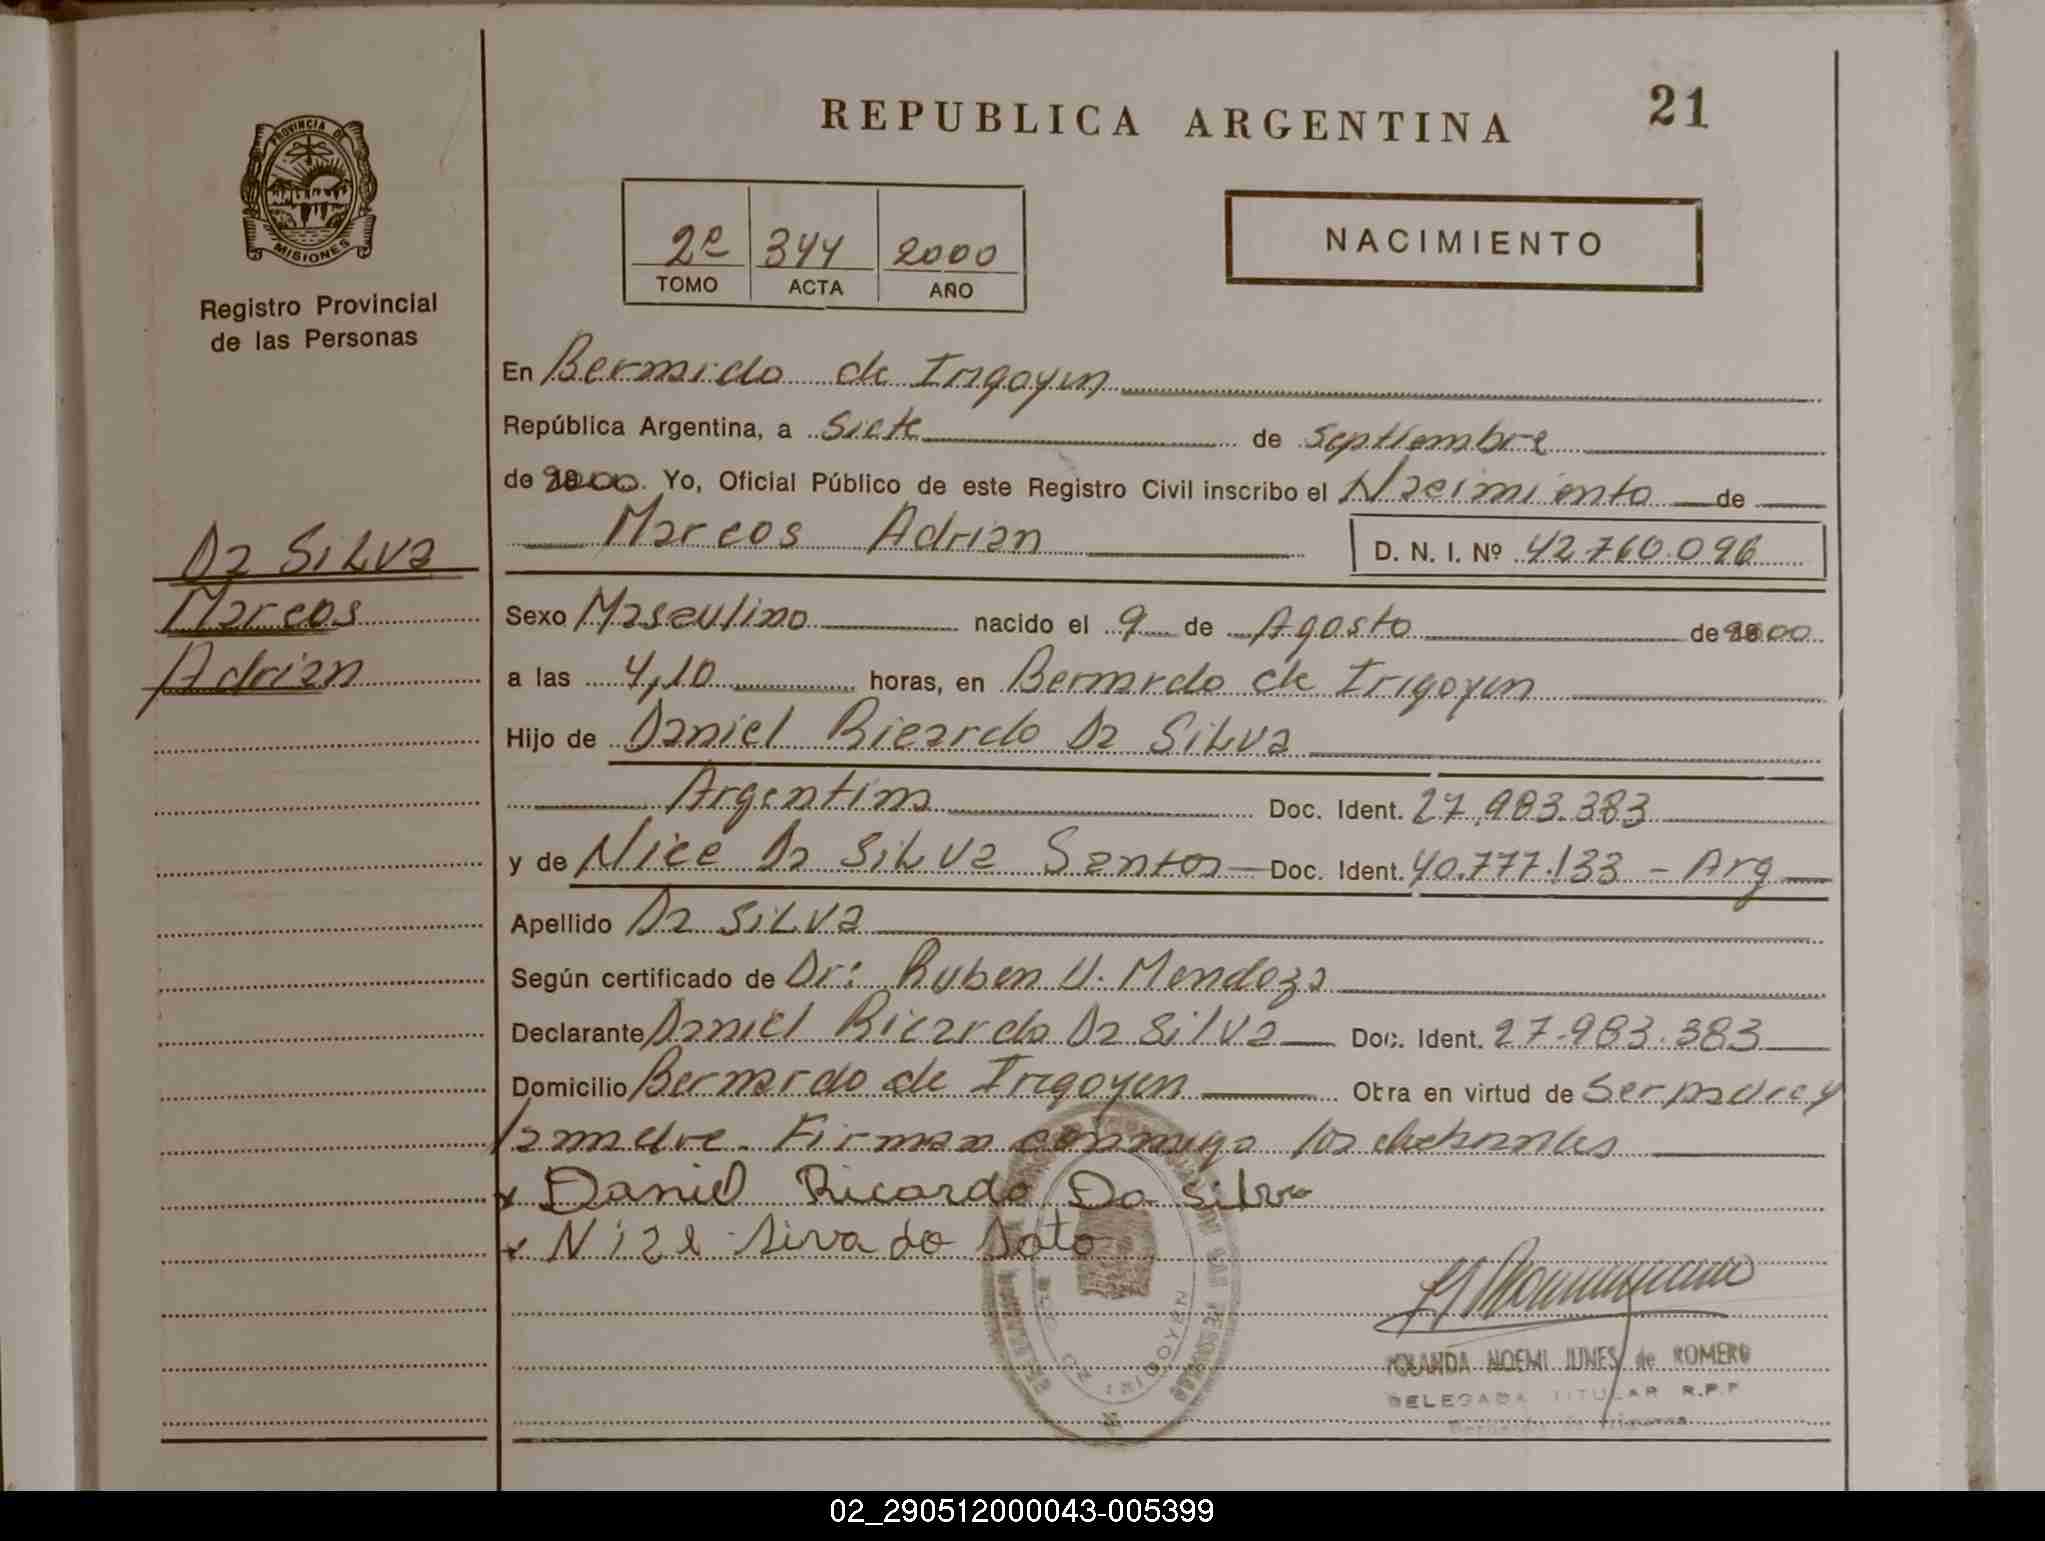 REPUBLICA ARGENTINA
21
PROVINCIA DE
MISIONES
Registro Provincial
de las Personas
2º 344 2000
TOMO ACTA AÑO
NACIMIENTO
En Bernardo de Irigoyen
República Argentina, a Siete de Septiembre
de 2000. Yo, Oficial Público de este Registro Civil inscribo el Nacimiento de
Marcos Adrian D. N. I. Nº 42.760.096
Da SiLVa
Marcos
Adrian
Sexo Masculino nacido el 9 de Agosto de 2000
a las 4,10 horas, en Bernardo de Irigoyen
Hijo de Daniel Ricardo Da SiLVa
Argentino Doc. Ident. 27.983.383
y de Nice Da SiLVa Santos Doc. Ident. 40.777.133 - Arg
Apellido Da SiLVa
Según certificado de Dr: Ruben U. Mendoza
Declarante Daniel Ricardo Da Silva Doc. Ident. 27.983.383
Domicilio Bernardo de Irigoyen Obra en virtud de Ser padre y
la madre. Firman conmigo los
x Daniel Ricardo Da Silva
x
YOLANDA NOEMI JUNES de ROMERO
DELEGADA TITULAR R.P.P.
Bernardo de Irigoyen
02_290512000043-005399